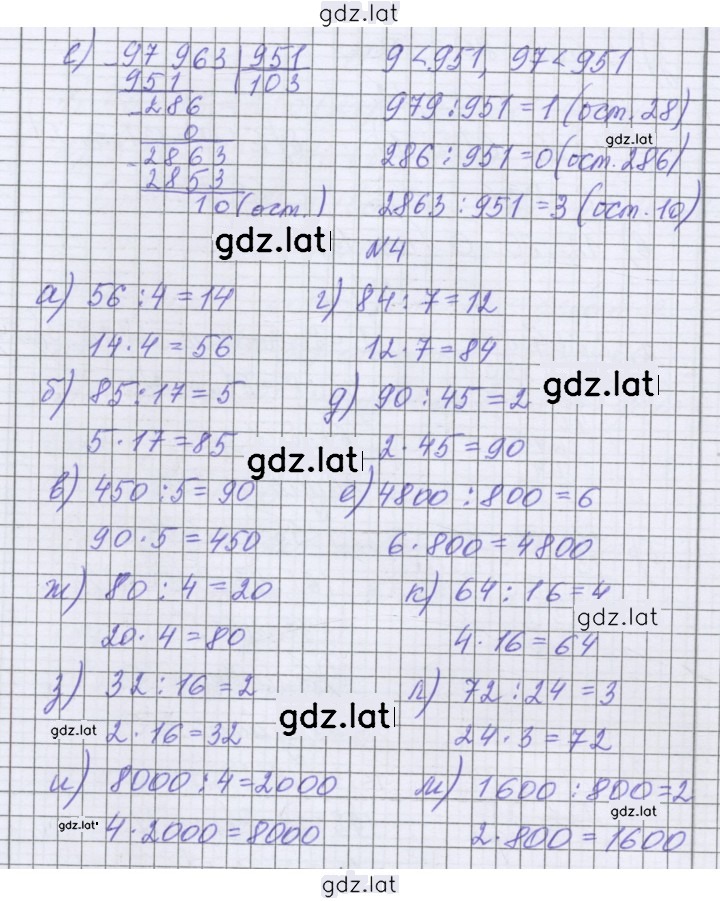 gdz.lat
е) 97 963 | 951 9 < 951, 97 < 951
951 103
286 979 : 951 = 1 (ост. 28)
0 gdz.lat
2863 286 : 951 = 0 (ост. 286)
2853
10 (ост.) 2863 : 951 = 3 (ост. 10)
gdz.lat №4
а) 56 : 4 = 14 г) 84 : 7 = 12
14 · 4 = 56 12 · 7 = 84
б) 85 : 17 = 5 д) 90 : 45 = 2 gdz.lat
5 · 17 = 85 gdz.lat 2 · 45 = 90
в) 450 : 5 = 90 е) 4800 : 800 = 6
90 · 5 = 450 6 · 800 = 4800
ж) 80 : 4 = 20 к) 64 : 16 = 4
gdz.lat
20 · 4 = 80 4 · 16 = 64
з) 32 : 16 = 2 л) 72 : 24 = 3
gdz.lat
gdz.lat 2 · 16 = 32 24 · 3 = 72
и) 8000 : 4 = 2000 м) 1600 : 800 = 2
gdz.lat
gdz.lat 4 · 2000 = 8000 2 · 800 = 1600
gdz.lat